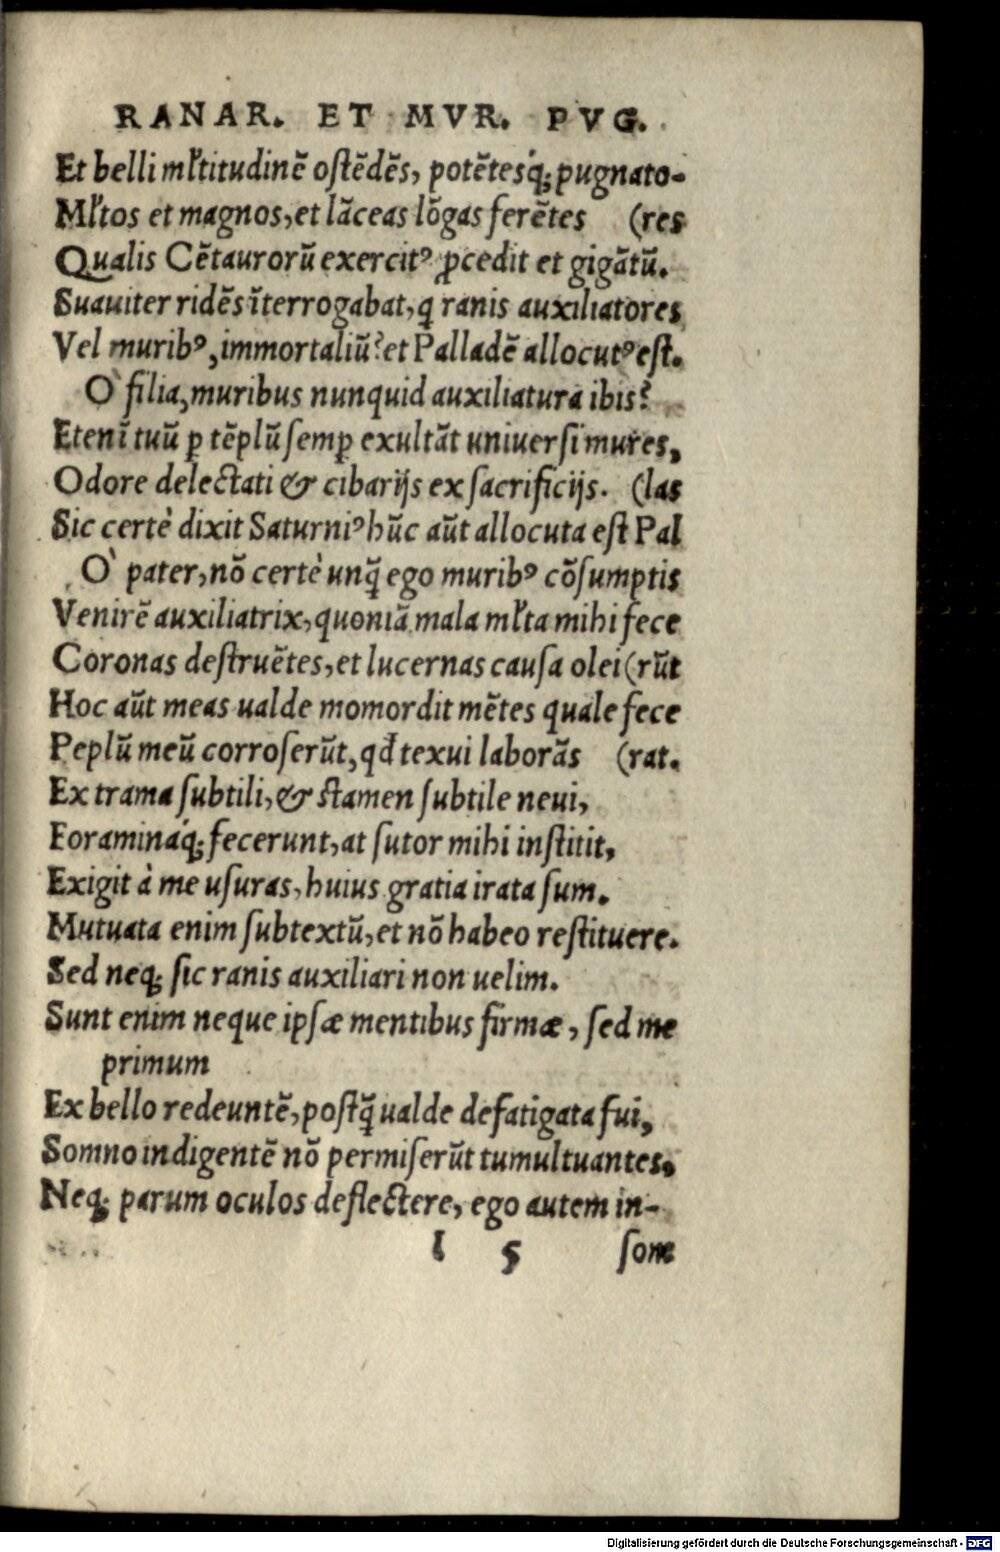 RANAR. ET MVR. PVG.
Et belli ml̃titudinẽ oſtẽdẽs, potẽtesq́; pugnato-
Ml̃tos et magnos, et lãceas lõgas ferẽtes (res
Qualis Cẽtaurorũ exercitꝰ ꝓcedit et gigãtũ.
Suauiter ridẽs ĩterrogabat, q ranis auxiliatores
Vel muribꝰ, immortaliũ? et Palladẽ allocutꝰ eſt.
O` filia, muribus nunquid auxiliatura ibis?
Etenĩ tuũ ꝑ tẽplũ ſemꝑ exultãt uniuerſi mures,
Odore delectati & cibarijs ex ſacrificijs. (las
Sic certè dixit Saturniꝰ hũc aũt allocuta eſt Pal
O` pater, nõ certè unq̃ ego muribꝰ cõſumptis
Venirẽ auxiliatrix, quoniã mala ml̃ta mihi fece
Coronas deſtruẽtes, et lucernas cauſa olei (rũt
Hoc aũt meas ualde momordit mẽtes quale fece
Peplũ meũ corroſerũt, qđ texui laborãs (rat.
Ex trama ſubtili, & ſtamen ſubtile neui,
Foraminaq́; fecerunt, at ſutor mihi inſtitit,
Exigit à me uſuras, huius gratia irata ſum.
Mutuata enim ſubtextũ, et nõ habeo reſtituere.
Sed neq; ſic ranis auxiliari non uelim.
Sunt enim neque ipſæ mentibus firmæ, ſed me
primum
Ex bello redeuntẽ, poſtq̃ ualde defatigata fui,
Somno indigentẽ nõ permiſerũt tumultuantes,
Neq; parum oculos deflectere, ego autem in-
l 5 ſom
Digitalisierung gefördert durch die Deutsche Forschungsgemeinschaft - DFG